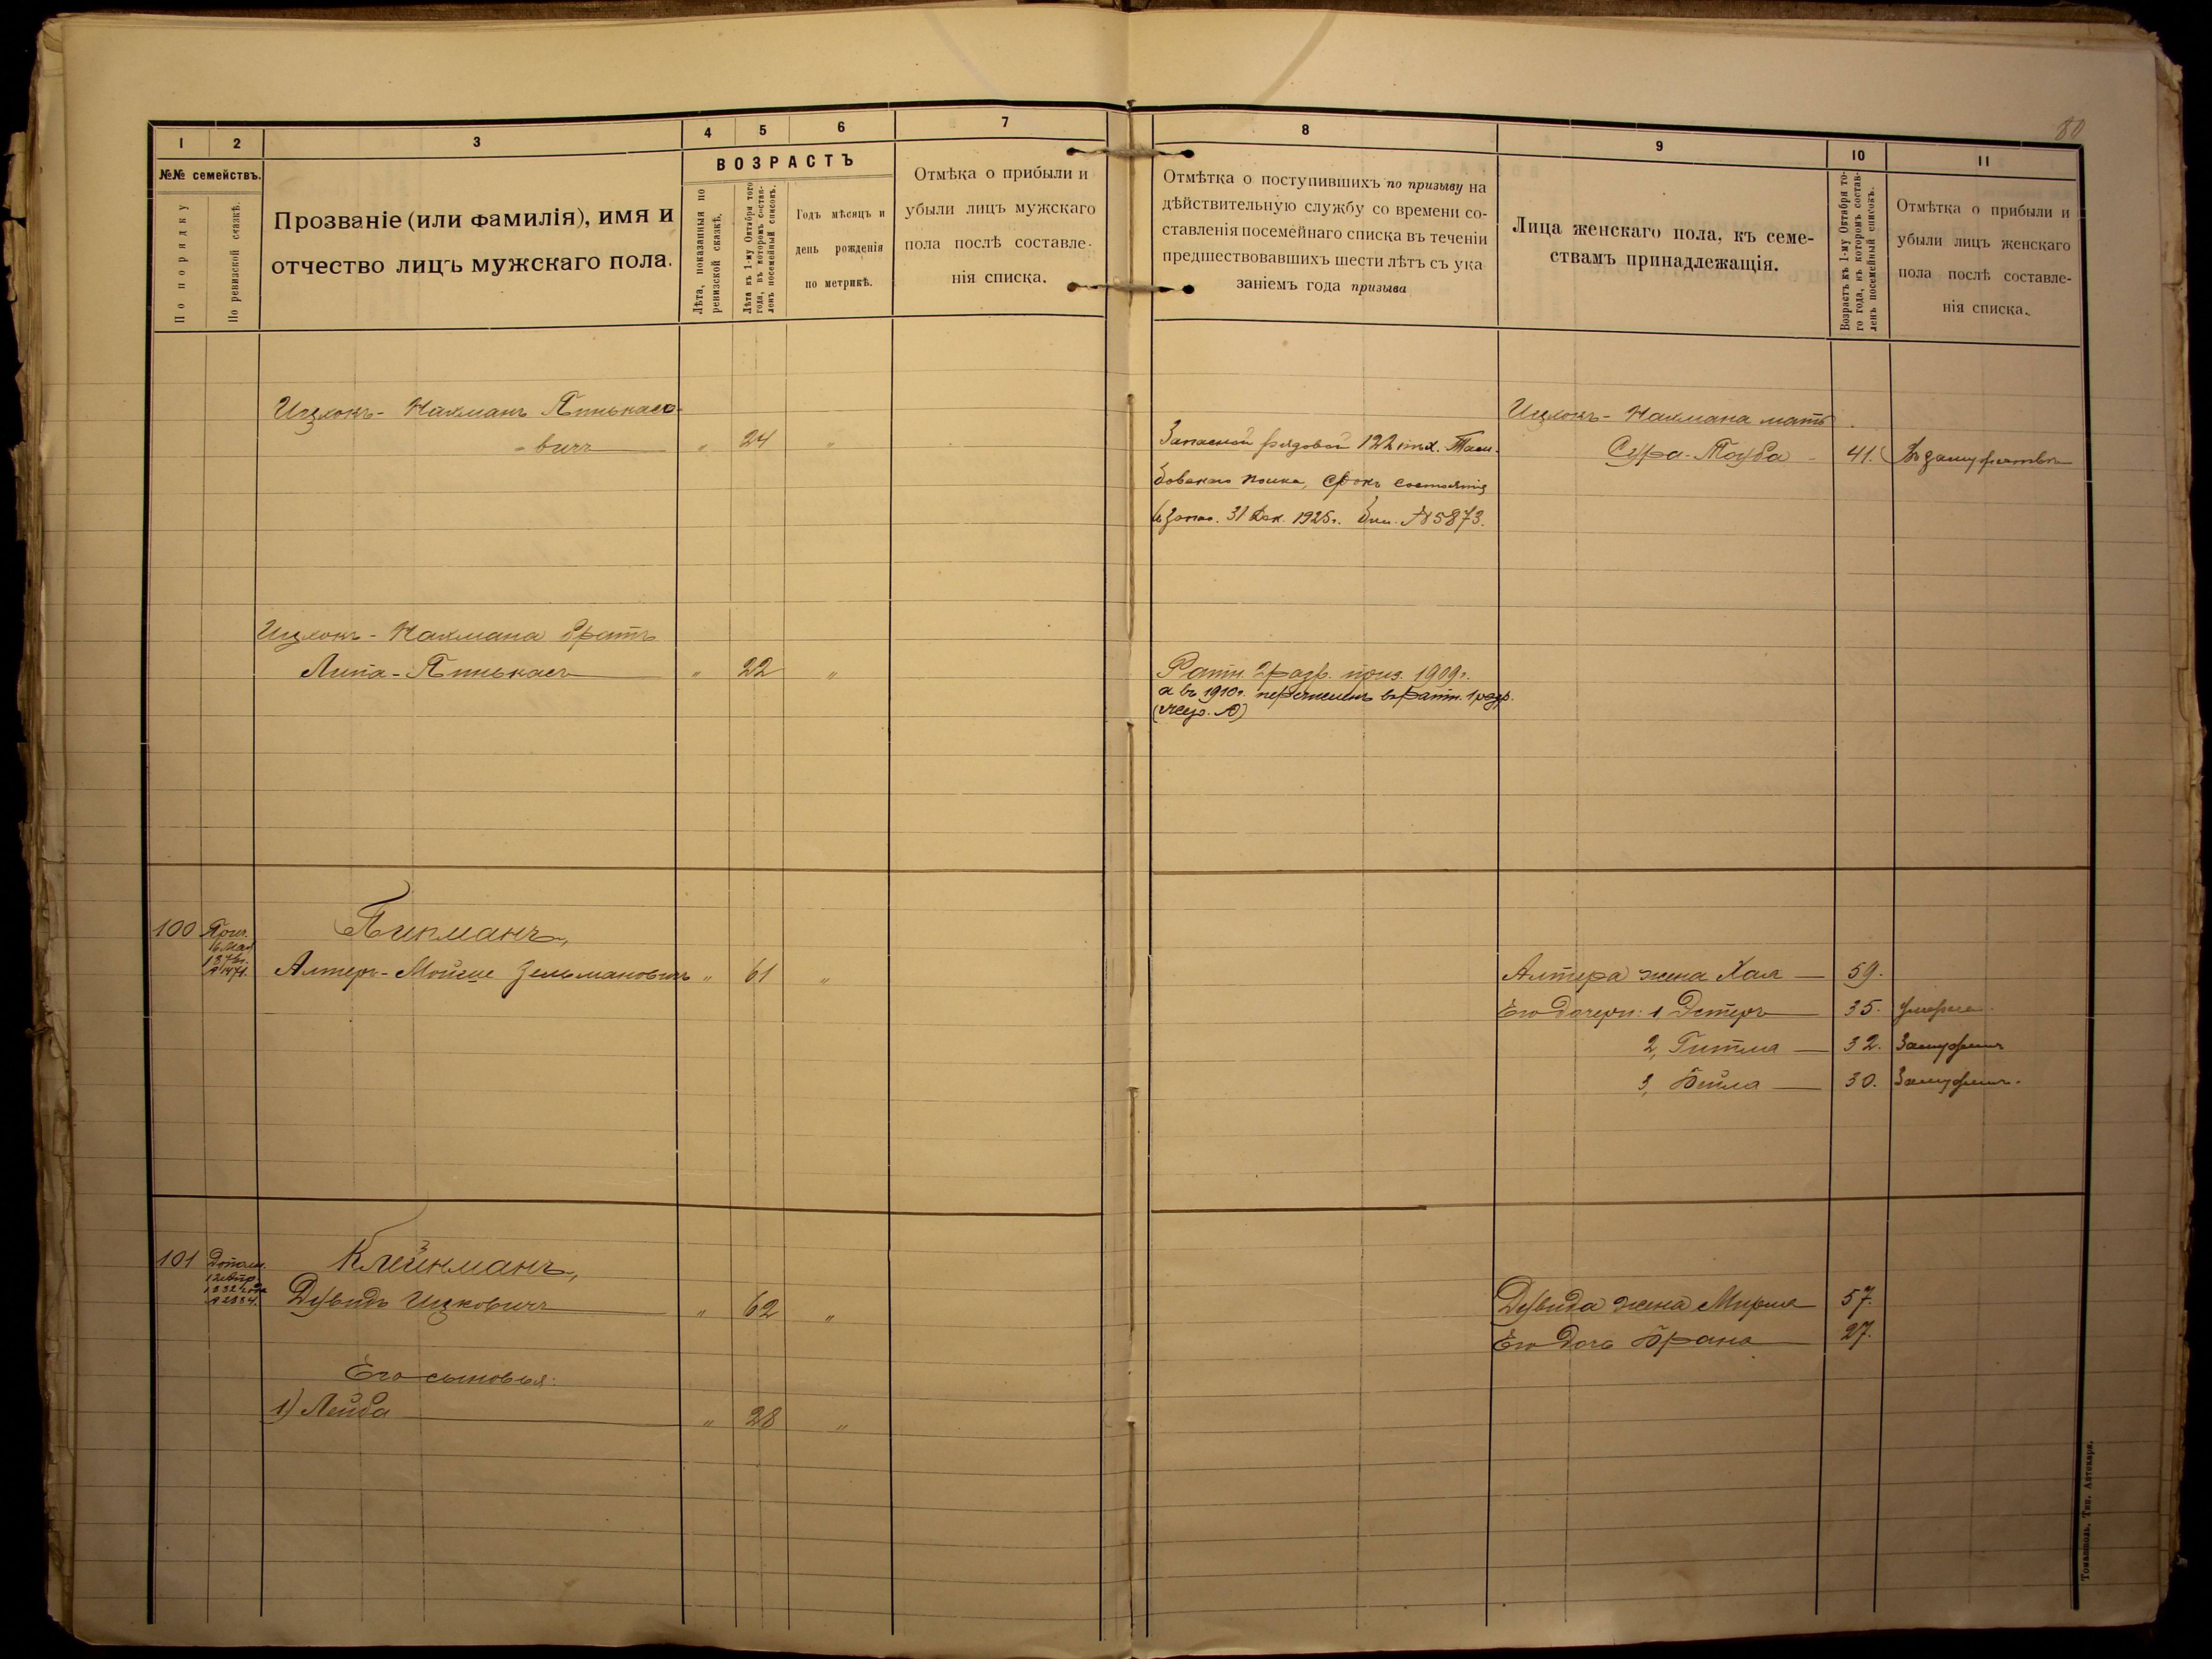 80
1
2
3
4
5
6
7
8
9
10
11
№№ семействъ.
По порядку
По ревизской сказкѣ.
Прозваніе (или фамилія), имя и
отчество лицъ мужскаго пола.
ВОЗРАСТЪ
Лѣта, показанныя по
ревизской сказкѣ.
Лѣта къ 1-му Октября того
года, въ которомъ состав-
ленъ посемейный списокъ.
Годъ мѣсяцъ и
день рожденія
по метрикѣ.
Отмѣка о прибыли и
убыли лицъ мужскаго
пола послѣ составле-
нія списка.
Отмѣтка о поступившихъ по призыву на
дѣйствительную службу со времени со-
ставленія посемейнаго списка въ теченіи
предшествовавшихъ шести лѣтъ съ ука
заніемъ года призыва
Лица женскаго пола, къ семе-
ствамъ принадлежащія.
Возрастъ къ 1-му Октября то-
го года, въ которомъ состав-
ленъ посемейный списокъ.
Отмѣтка о прибыли и
убыли лицъ женскаго
пола послѣ составле-
нія списка.
Ицхокъ-Нахманъ Пинькасо-
вичъ " 24 "
Запасной рядовой 122 пѣх. Там-
бовскаго полка, срокъ состоянія
въ запас. 31 Дек. 1925г. бил. №5873.
Ицхокъ-Нахмана мать
Сура-Тауба 41. Въ замужествѣ
Ицхокъ-Нахмана братъ
Липа-Пинькасъ " 22 "
Ратн. 2 разр. приз. 1909г.
а въ 1910г. перечисленъ въ ратн. 1 разр.
100 Прич.
16 Мая
Пикманъ,
Алтеръ-Мойше Зельмановичъ " 61 "
Алтера жена Хая 59.
Его дочери: 1, Эстеръ 35. умерла.
2, Гитля 32. Замужемъ
3, Бейла 30. Замужемъ.
101 Дополн.
Клейнманъ,
Дувидъ Ицковичъ " 62 "
Дувида жена Мирля 57.
Его дочь Брана 27.
Его сыновья:
1) Лейба " 28 "
Томашполь, Тип. Аптекаря.